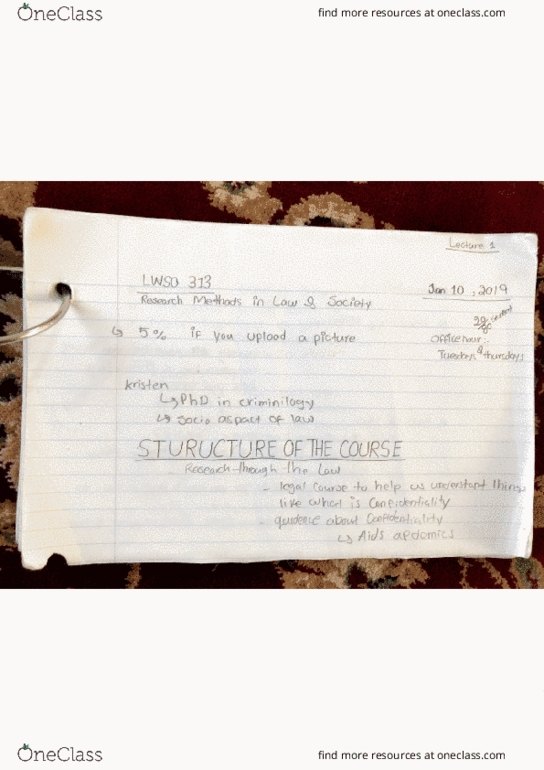 OneClass
find more resources at oneclass.com
Lecture 1
LWSO 313
Jan 10, 2019
Research Methods in Law & Society
↳ 5% if you upload a picture
Office hour:
Tuesdays & thursdays
kristen
↳ PhD in criminilogy
↳ Socio aspact of law
STURUCTURE OF THE COURSE
Research through the Law
- legal Course to help us understant things
live what is Confidentiality
- about Confidentiality
↳ Aids apdomics
OneClass
find more resources at oneclass.com